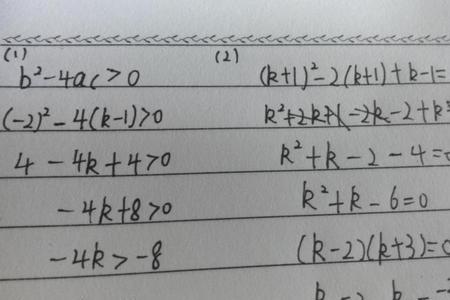 (1)
b²-4ac>0
(-2)²-4(k-1)>0
4-4k+4>0
-4k+8>0
-4k>-8
(2)
(k+1)²-2(k+1)+k-1=
k²+2k+1-2k-2+k
k²+k-2-4=
k²+k-6=0
(k-2)(k+3)=0